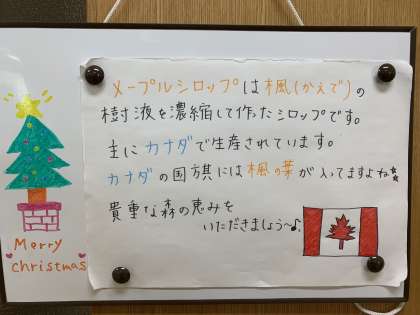 メープルシロップは楓(かえで)の
樹液を濃縮して作ったシロップです。
主にカナダで生産されています。
カナダの国旗には楓の葉が入ってますよね☆
貴重な森の恵みを
いただきましょう〜♪
Merry
christmas